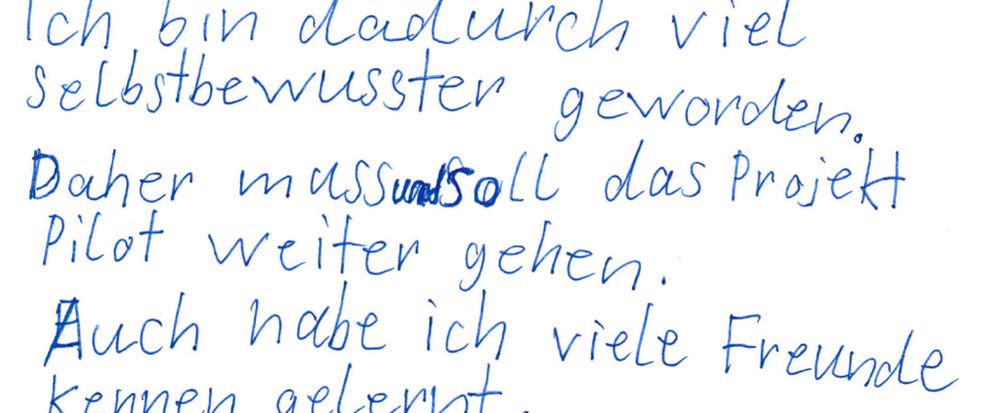 Ich bin dadurch viel
selbstbewusster geworden.
Daher muss und soll das Projekt
Pilot weiter gehen.
Auch habe ich viele Freunde
kennen gelernt.